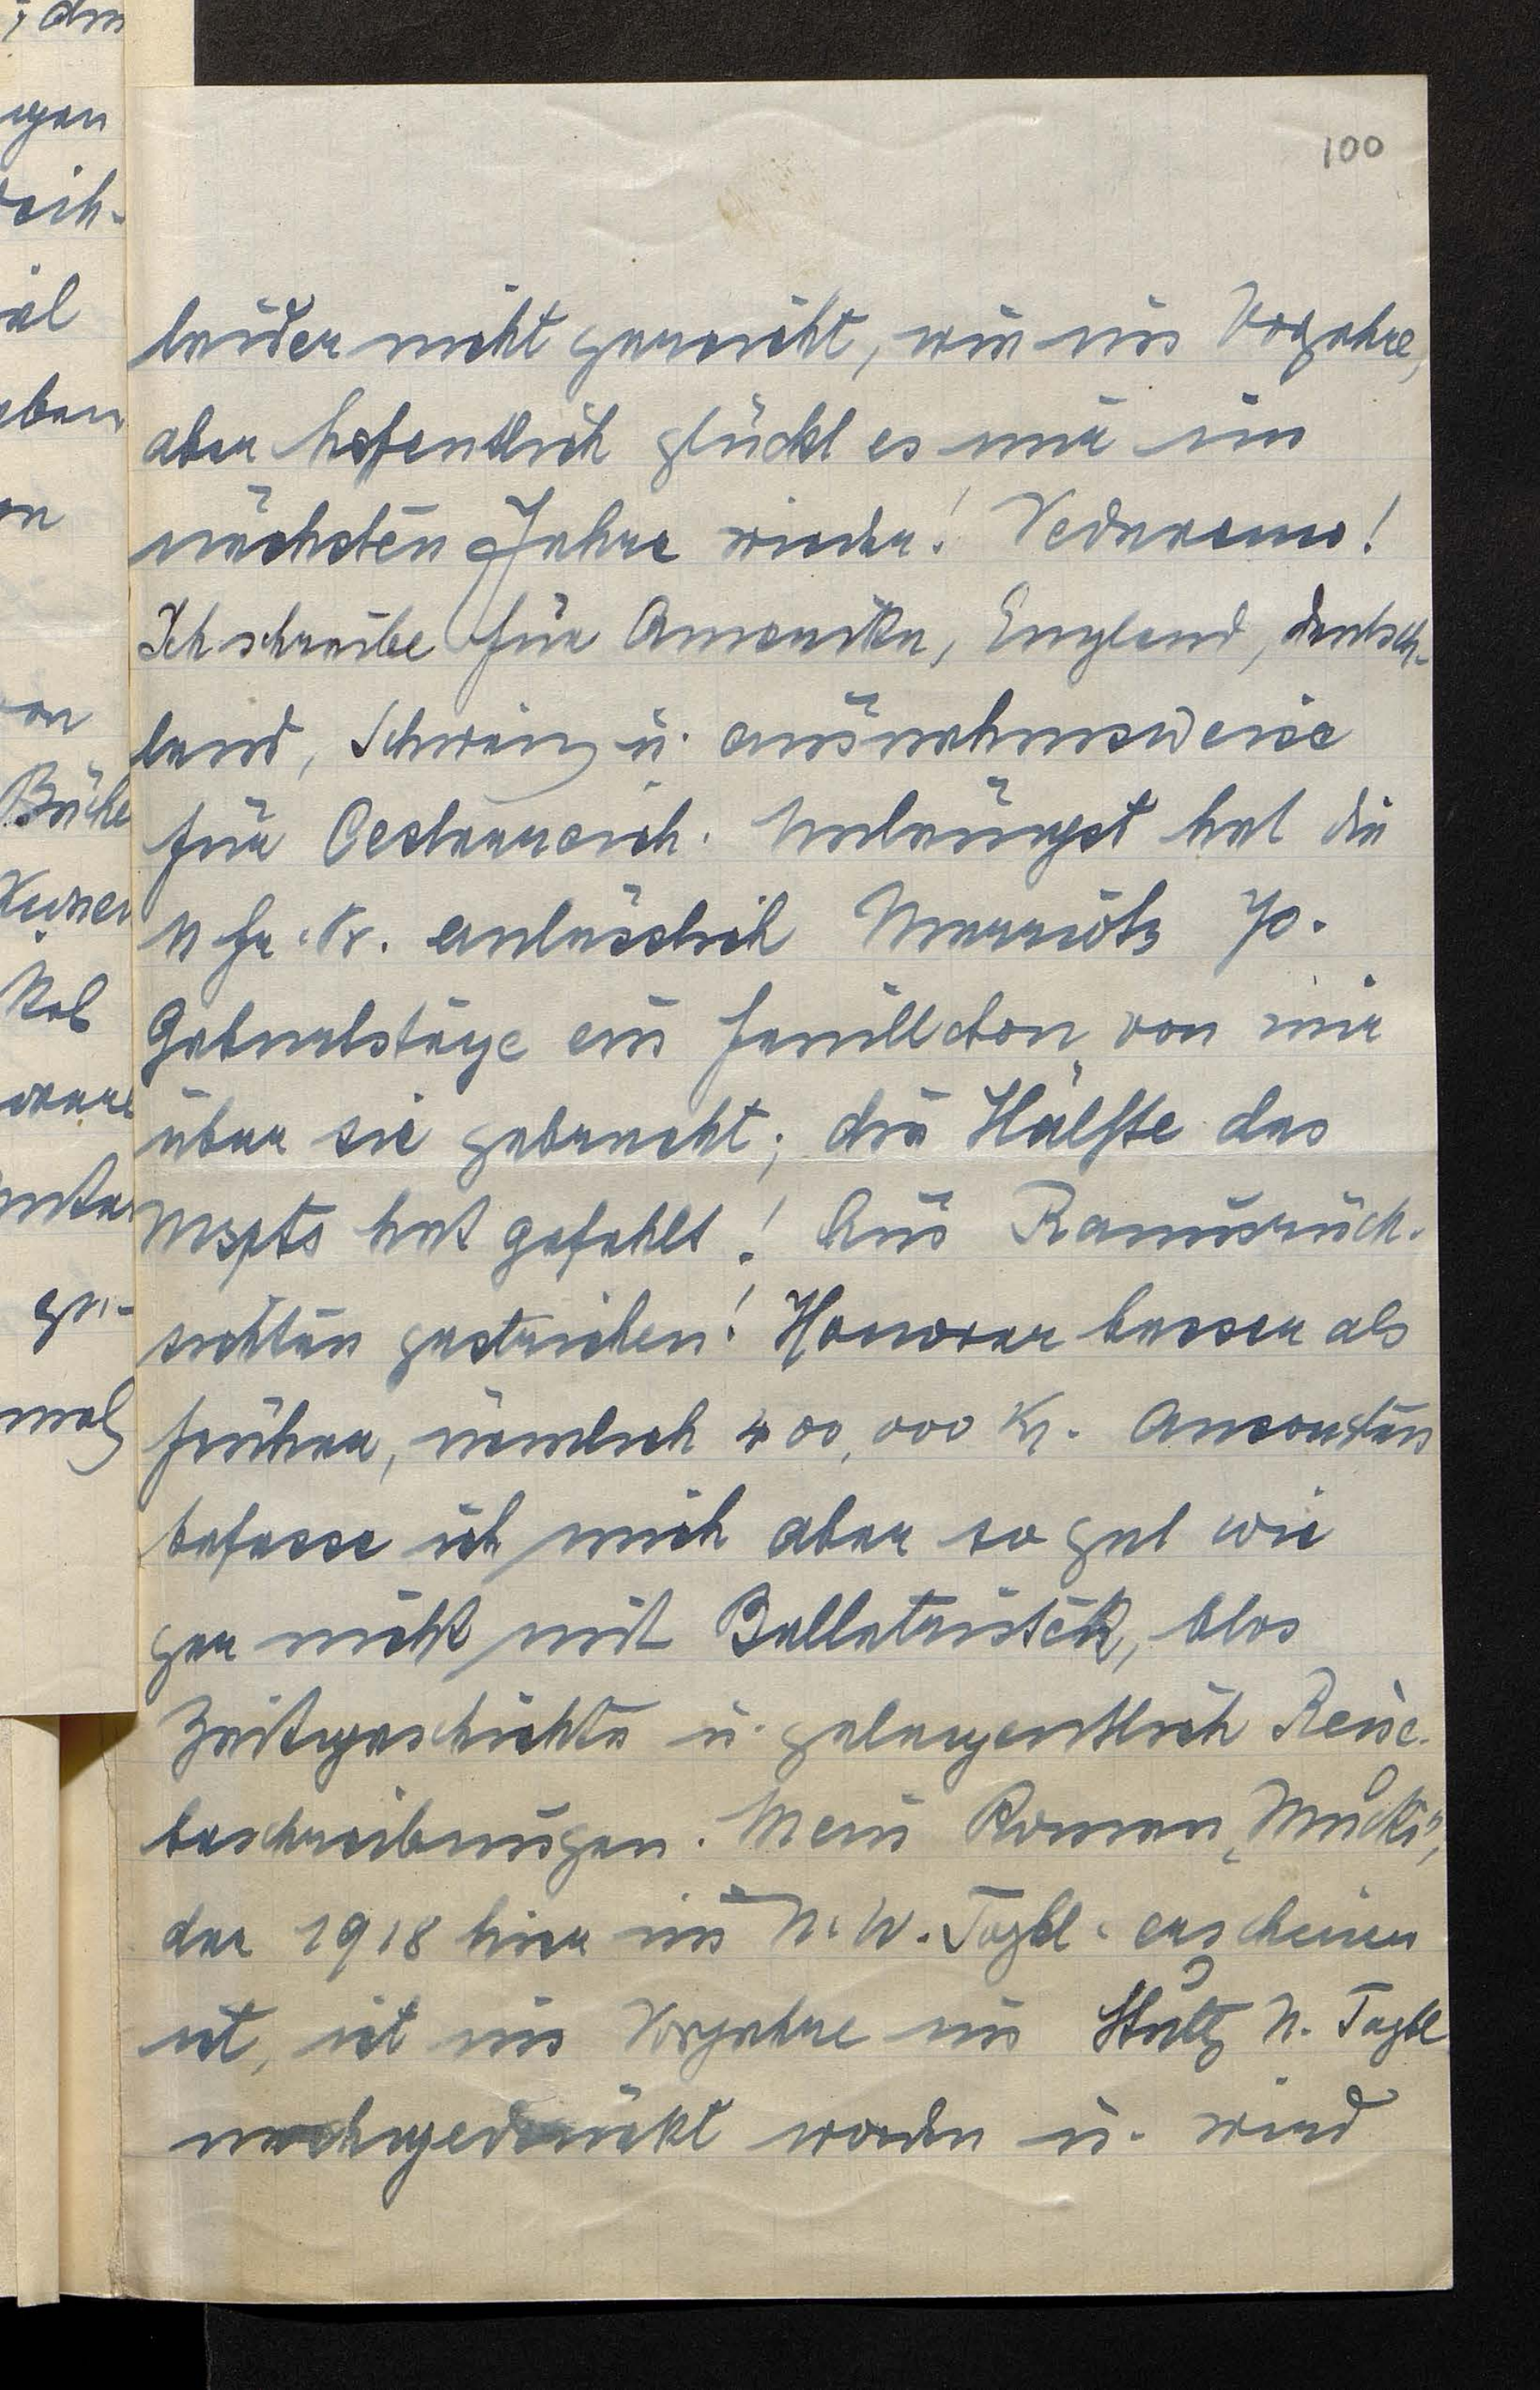 100
leider nicht gereicht, wie im Vorjahre,
aber hofentlich glückt es mir im
nächsten Jahre wieder! Vedaremo!
Ich schreibe für Amerika, England, Deutsch-
land, Schweiz u. ausnahmsweise
für Oesterreich. Unlängst hat die
N fr. Pr. anlässlich Marriots 70.
Geburtstage ein Feuilleton von mir
über sie gebracht; die Hälfte des
Mspts hat gefehlt! Aus Raumrück-
sichten gestrichen! Honorar besser als
früher, nämlich 400,000 Kr. Ansonsten
befasse ich mich aber so gut wie
gar nicht mit Belletristik, blos
Zeitgeschichte u. gelegentlich Reise-
beschreibungen. Mein Roman „Mucki",
der 1918 hier im N. W. Tagbl. erschienen
ist, ist im Vorjahre im Stuttg N. Tagbl
nachgedruckt worden u. wird